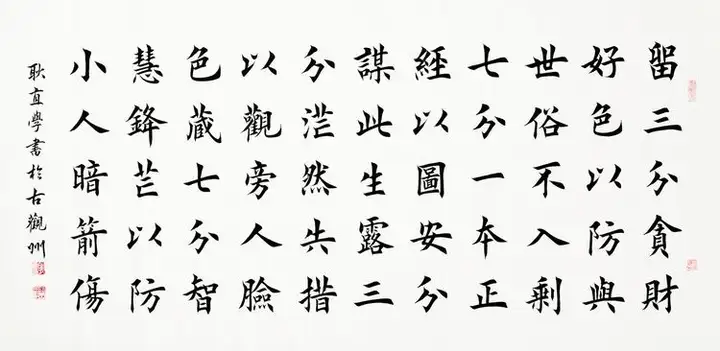 留三分貪財
好色以防與
世俗不入剩
七分一本正
經以圖安分
謀此生露三
分茫然失措
以觀旁人臉
色藏七分智
慧鋒芒以防
小人暗箭傷
耿直學書於古觀州